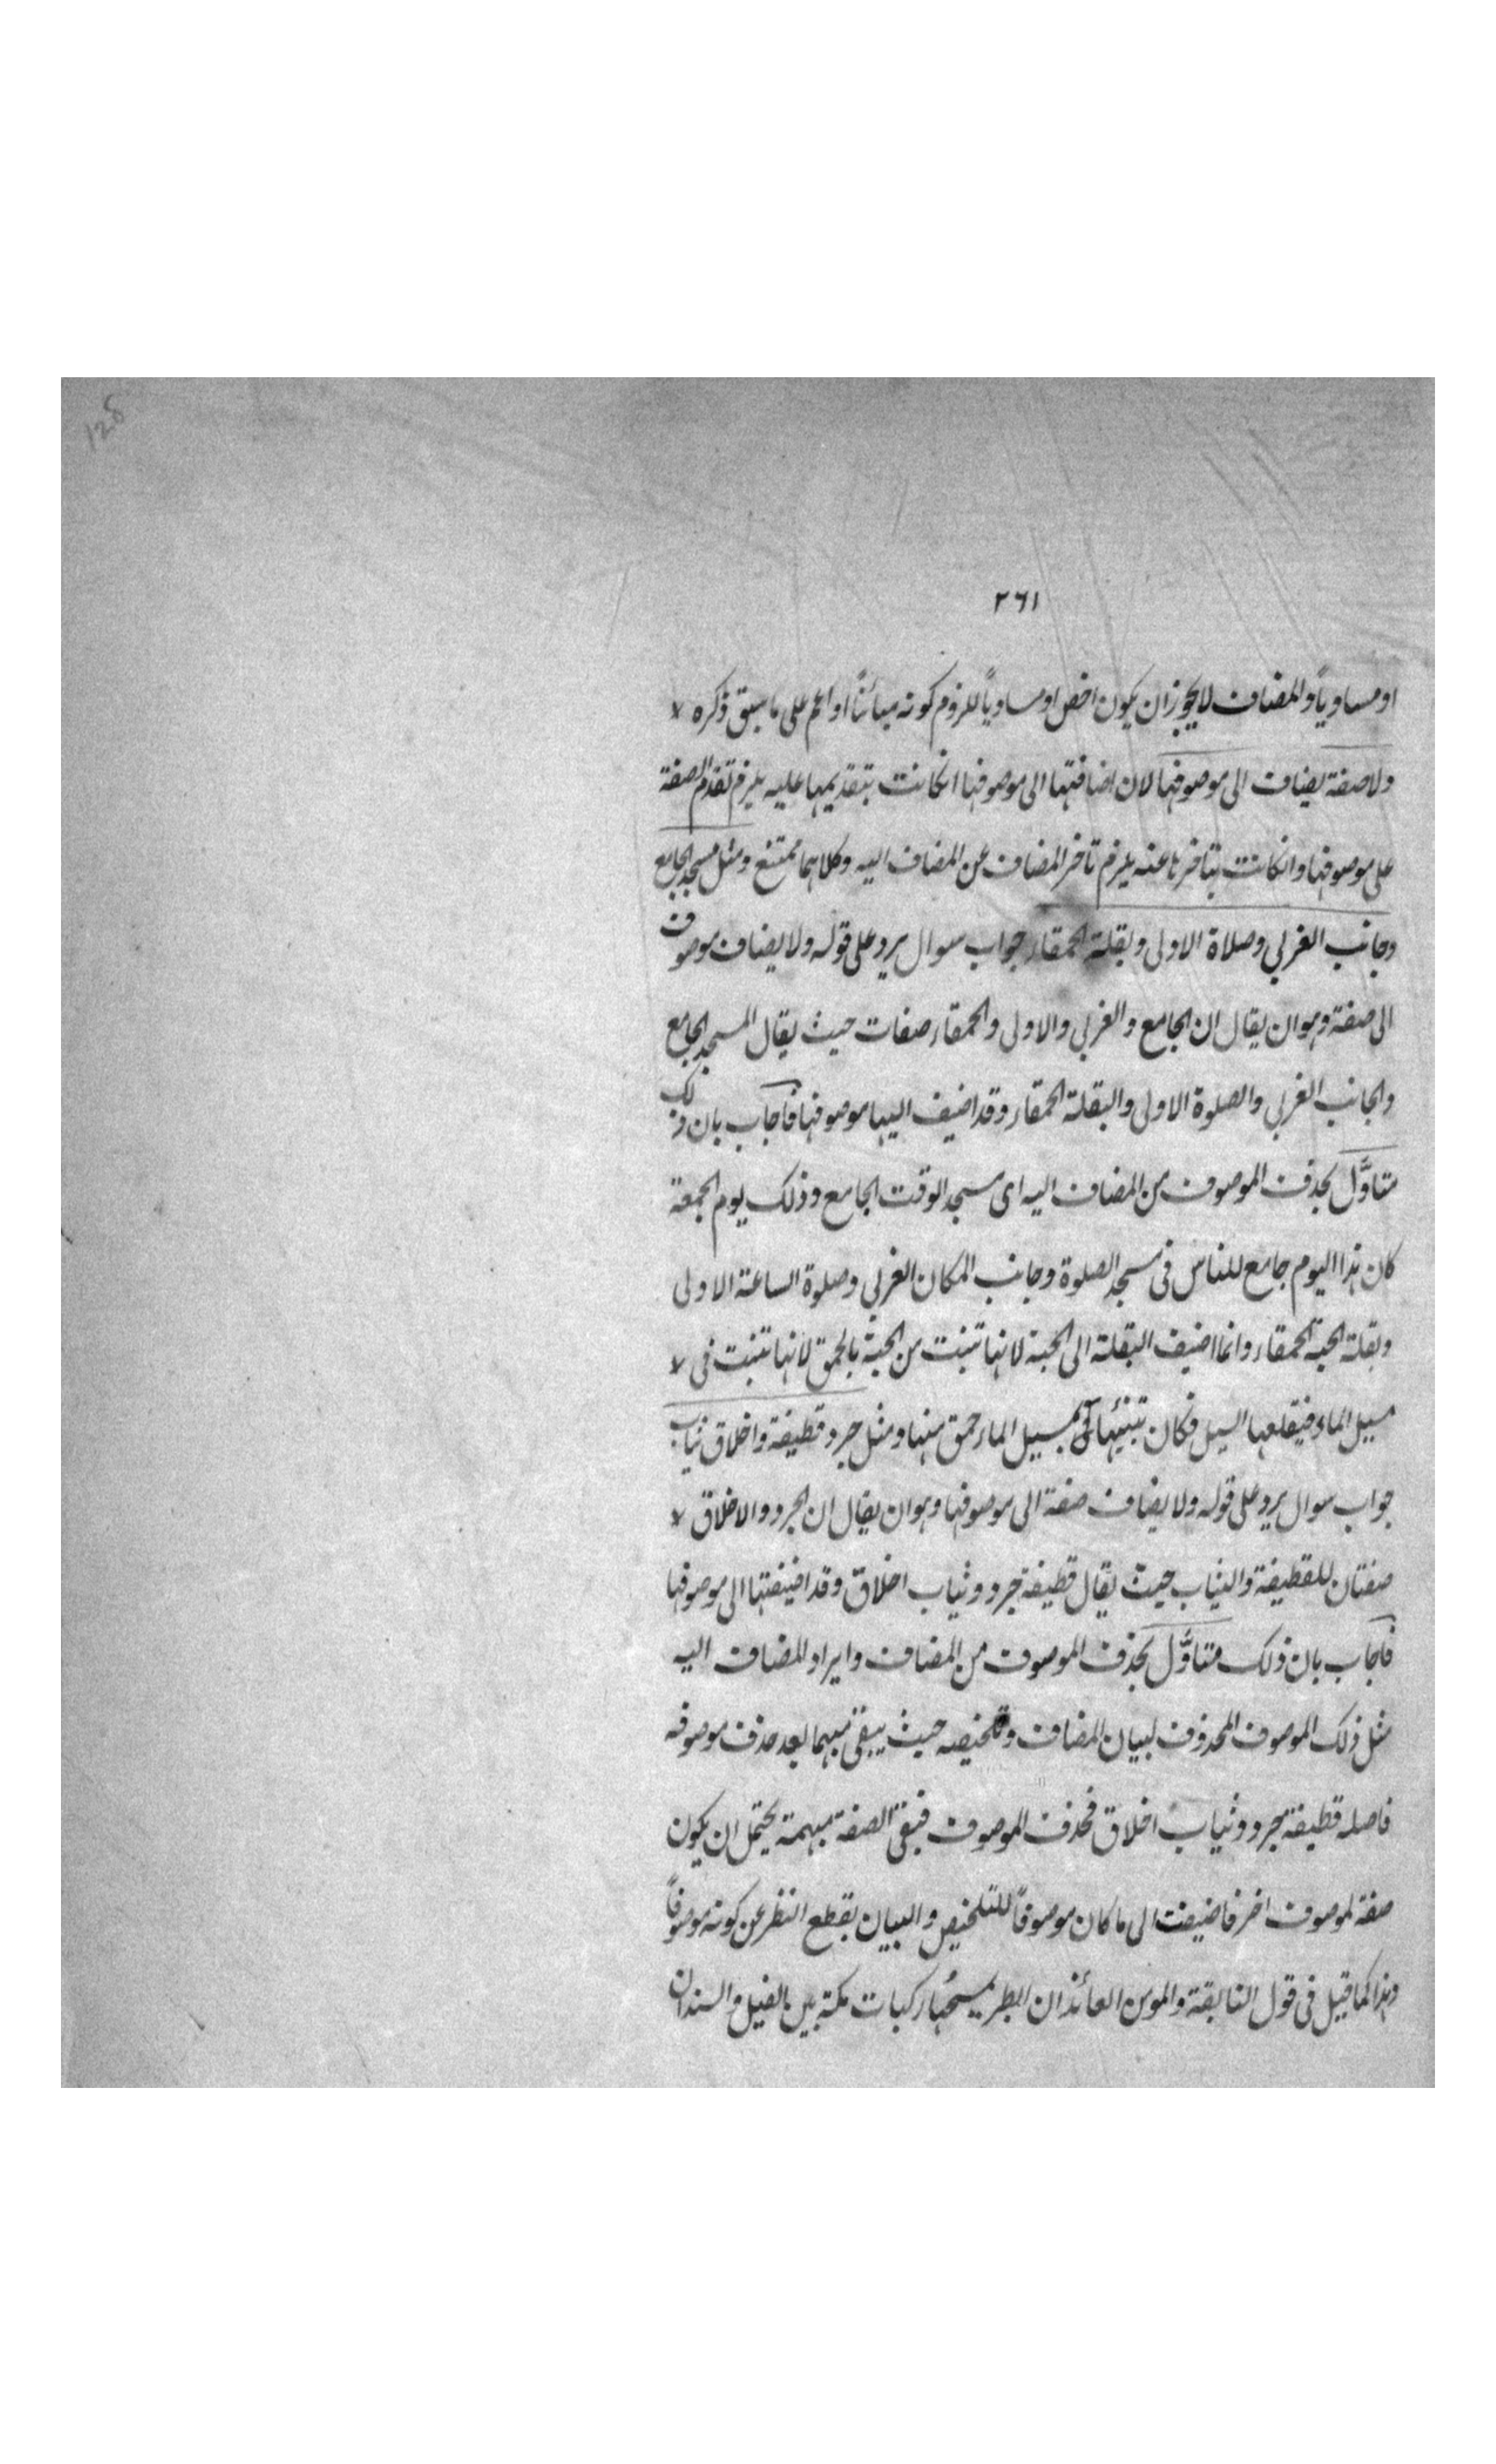 128
٢٦١
او مساوياً والمضاف لايجوز ان يكون اخص او مساوياً للزوم كونه مبائناً او اعم على ما سبق ذكره
ولا صفة يضاف الى موصوفها لان اضافتها الى موصوفها انكانت بتقديمها عليه يلزم تقدم الصفة
على موصوفها وانكانت بتاخرها عنه يلزم تاخر المضاف عن المضاف اليه وكلاهما ممتنع ومثل مسجد الجامع
وجانب الغربي وصلاة الاولى وبقلة الحمقاء جواب سوال يرد على قوله ولا يضاف موصوف
الى صفة وهو ان يقال ان الجامع والغربي والاولى والحمقاء صفات حيث يقال المسجد الجامع
والجانب الغربي والصلوة الاولى والبقلة الحمقاء وقد اضيف اليها موصوفها فاجاب بان ذلك
متاوَّل بحذف الموصوف من المضاف اليه اى مسجد الوقت الجامع وذلك يوم الجمعة
كان هذا اليوم جامع للناس فى مسجد الصلوة وجانب المكان الغربي وصلوة الساعة الاولى
وبقلة الحبة الحمقاء وانما اضيف البقلة الى الحبة لانها تنبت من الحبة بالحمق لانها تنبت فى
مسيل الماء فيقلعها السيل فكان بمسيل الماء حمق منها ومثل جرد قطيفة واخلاق ثياب
جواب سوال يرد على قوله ولا يضاف صفة الى موصوفها وهو ان يقال ان الجرد والاخلاق
صفتان للقطيفة والثياب حيث يقال قطيفة جرد وثياب اخلاق وقد اضيفتها الى موصوفها
فاجاب بان ذلك متاوَّل بحذف الموصوف من المضاف وايراد المضاف اليه
مثل ذلك الموصوف المحذوف لبيان المضاف وتلخيصه حيث يبقى مبهما بعد حذف موصوفه
فاصله قطيفة جرد وثياب اخلاق فحذف الموصوف فبقى الصفة مبهمة يحتمل ان يكون
صفة لموصوف اخر فاضيفت الى ما كان موصوفاً للتلخيص والبيان بقطع النظر عن كونه موصوفاً
وهذا كما قيل فى قول النابغة والمومن العائذان الطير يمسحُها ركبات مكة بين الغيل والسندان